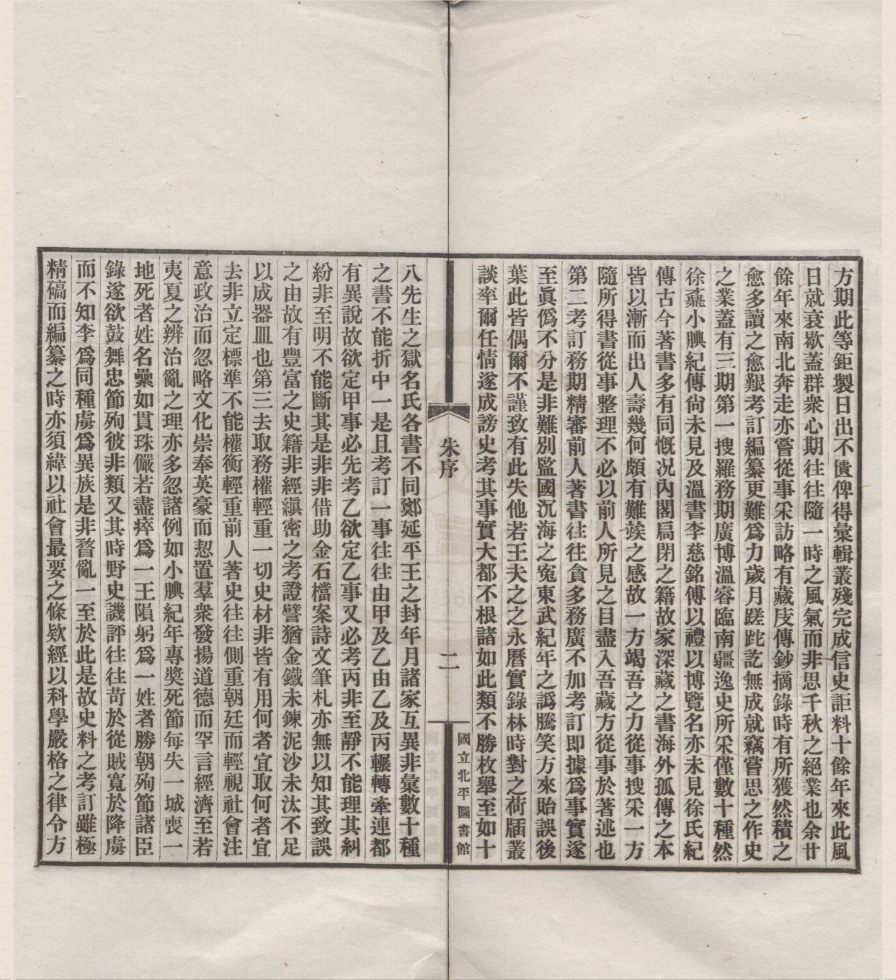 方期此等鉅製日出不匱俾得彙輯叢殘完成信史詎料十餘年來此風
日就衰歇蓋群衆心期往往隨一時之風氣而非思千秋之絕業也余廿
餘年來南北奔走亦嘗從事采訪略有藏庋傳鈔摘錄時有所獲然積之
愈多讀之愈艱考訂編纂更難爲力歲月蹉跎訖無成就竊嘗思之作史
之業蓋有三期第一搜羅務期廣博溫睿臨南疆逸史所采僅數十種然
徐鼒小腆紀傳尙未見及溫書李慈銘傅以禮以博覽名亦未見徐氏紀
傳古今著書多有同慨况內閣扃閉之籍故家深藏之書海外孤傳之本
皆以漸而出人壽幾何頗有難竢之感故一方竭吾之力從事搜采一方
隨所得書從事整理不必以前人所見之目盡入吾藏方從事於著述也
第二考訂務期精審前人著書往往貪多務廣不加考訂即據爲事實遂
至眞僞不分是非難別監國沉海之寃東武紀年之譌騰笑方來貽誤後
葉此皆偶爾不謹致有此失他若王夫之之永曆實錄林時對之荷牐叢
談率爾任情遂成謗史考其事實大都不根諸如此類不勝枚舉至如十
朱序
二
國立北平圖書館
八先生之獄名氏各書不同鄭延平王之封年月諸家互異非彙數十種
之書不能折中一是且考訂一事往往由甲及乙由乙及丙輾轉牽連都
有異說故欲定甲事必先考乙欲定乙事又必考丙非至靜不能理其糾
紛非至明不能斷其是非非借助金石檔案詩文筆札亦無以知其致誤
之由故有豐富之史籍非經縝密之考證譬猶金鐵未鍊泥沙未汰不足
以成器皿也第三去取務權輕重一切史材非皆有用何者宜取何者宜
去非立定標準不能權衡輕重前人著史往往側重朝廷而輕視社會注
意政治而忽略文化崇奉英豪而恝置羣衆發揚道德而罕言經濟至若
夷夏之辨治亂之理亦多忽諸例如小腆紀年專獎死節每失一城喪一
地死者姓名纍如貫珠儼若盡瘁爲一王隕躬爲一姓者勝朝殉節諸臣
錄遂欲鼓舞忠節殉彼非類又其時野史譏評往往苛於從賊寬於降虜
而不知李爲同種虜爲異族是非瞀亂一至於此是故史料之考訂雖極
精碻而編纂之時亦須緯以社會最要之條欵經以科學嚴格之律令方